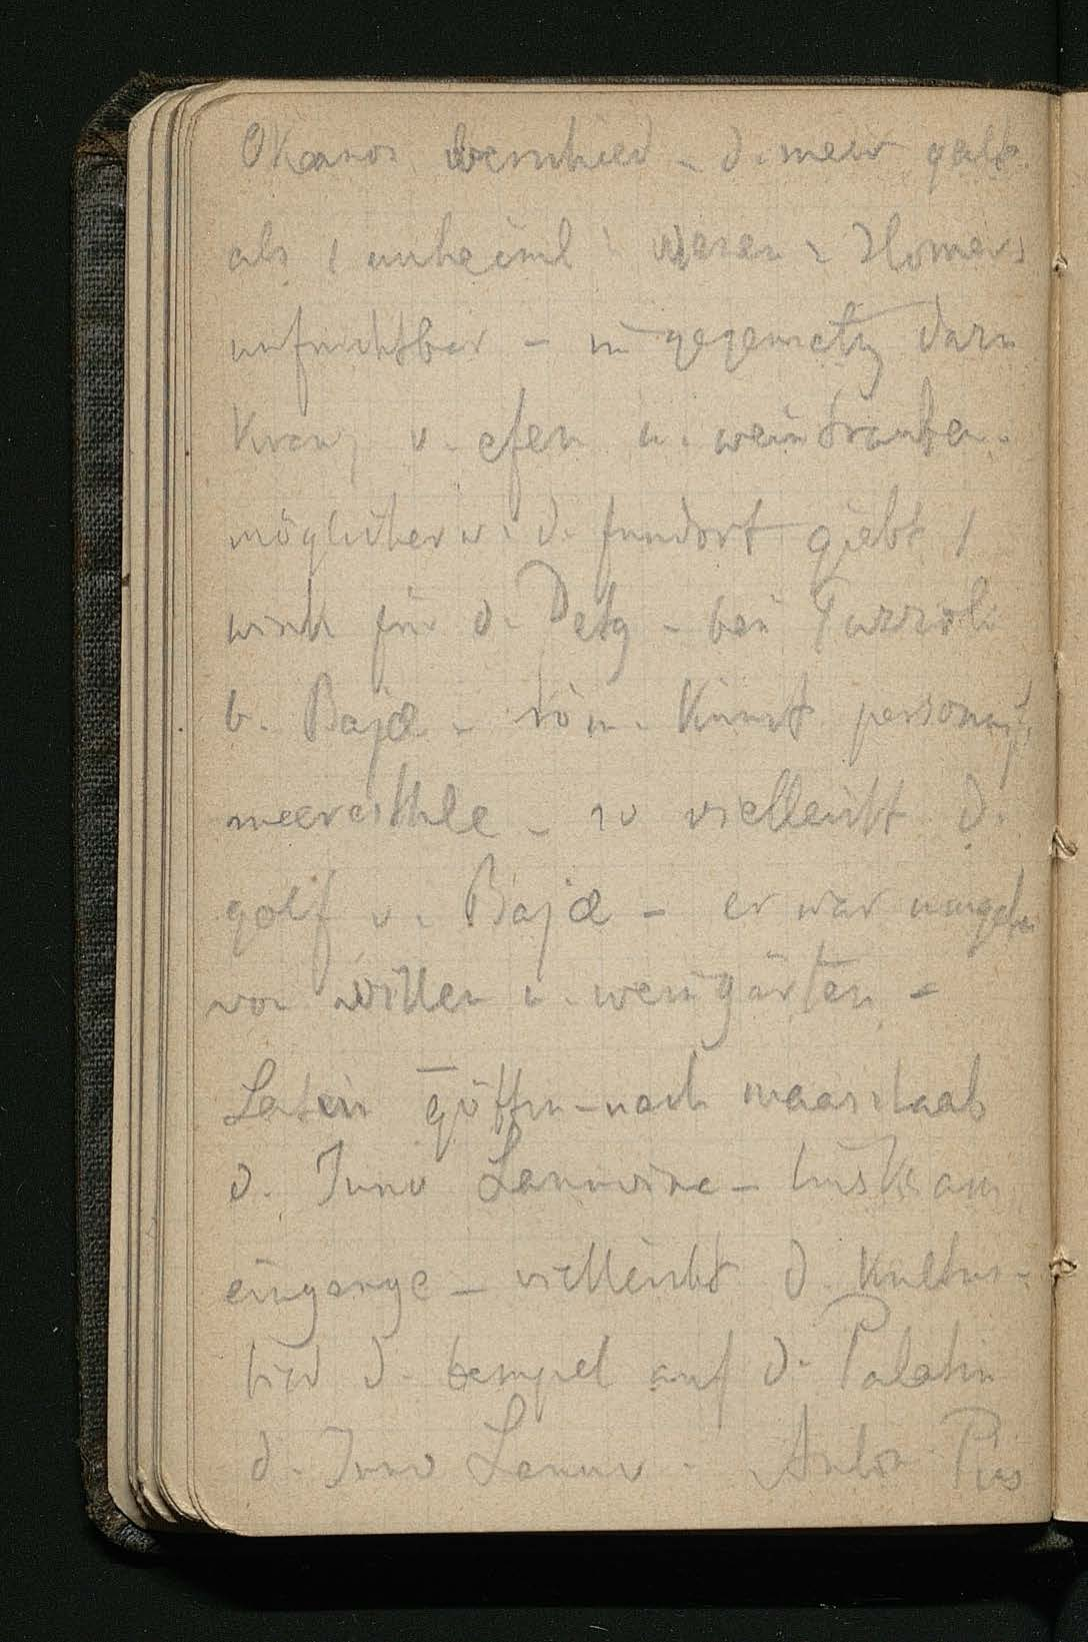 Okeanos verschied – d. meer galt
als 1 unheiml : wesen : Homers
unfruchtbar – im gegensatz dazu
Kranz v. efeu u. weintrauben.
möglicherw : d. fundort giebt 1
wink für d. Detg – bei Puzzioli
b. Bajæ – röm. Kunst personif.
meeresthle – so vielleicht d.
golf v. Bajæ – er war umgeben
von villen u. weingärten –
göttin – nach maasstaab
d. Juno Lanuvina – links am
eingange – vielleicht d. Kultus-
bild d. tempel auf d. Palatin
d. Juno Lanuv. Anton Pius